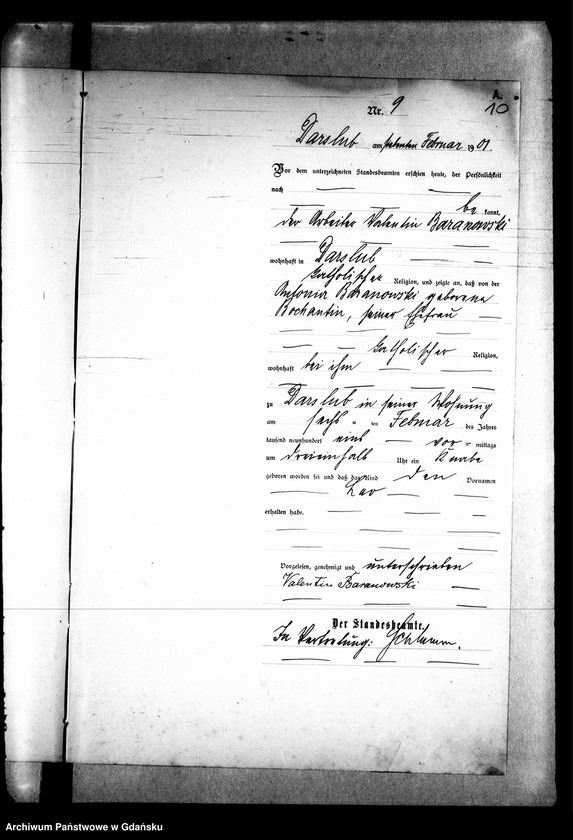 A.
10
Nr. 9
Darslub am siebenten Februar 1901.
Vor dem unterzeichneten Standesbeamten erschien heute, der Persönlichkeit
nach
be kannt,
der Arbeiter Valentin Baranowski
wohnhaft in Darslub
katholischer Religion, und zeigte an, daß von der
Antonia Baranowski geborene
Bochantin, seiner Ehefrau
katholischer Religion,
wohnhaft bei ihm
zu Darslub in seiner Wohnung
am sechs ten Februar des Jahres
tausend neunhundert eins vor mittags
um dreieinhalb Uhr ein Knabe
geboren worden sei und daß das Kind den Vornamen
Leo
erhalten habe.
Vorgelesen, genehmigt und unterschrieben
Valentin Baranowski
Der Standesbeamte.
In Vertretung:
Archiwum Państwowe w Gdańsku